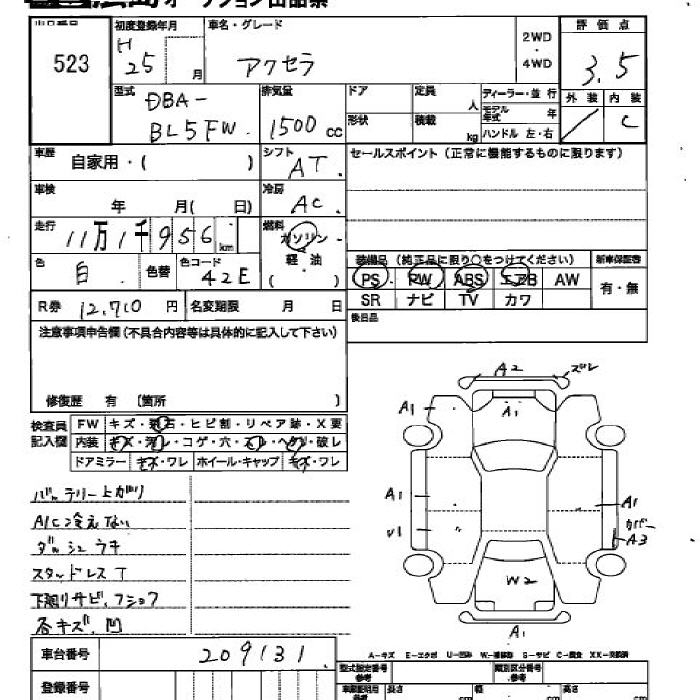 オークション出品票
出品番号
523
初度登録年月
H
25 月
車名・グレード
アクセラ
2WD
・
4WD
評価点
3.5
外装 内装
/ C
型式
DBA-
BL5FW.
排気量
1500 cc
ドア
形状
定員
人
積載
kg
ディーラー・並行
モデル年式 年
ハンドル 左・右
車歴
自家用・( )
シフト
AT.
セールスポイント (正常に機能するものに限ります)
車検
年 月( 日)
冷房
AC.
走行
11万1千956 km
燃料
ガソリン・
軽油
( )
色
白.
色替
色コード
42E
装備品 (純正品に限り○をつけてください)
新車保証書
PS PW ABS エアB AW
有・無
SR ナビ TV カワ
後日品
R券 12,710 円
名変期限 月 日
注意事項申告欄(不具合内容等は具体的に記入して下さい)
修復歴 有 〔箇所 〕
検査員
記入欄
FW キズ・飛石・ヒビ割・リペア跡・X要
内装 キズ・汚レ・コゲ・穴・スレ・ヘタリ・破レ
ドアミラー キズ・ワレ ホイール・キャップ キズ・ワレ
バッテリー上がり
A/C冷えない
ダッシュウキ
スタッドレスT
下廻りサビ、フショク
各キズ、凹
A2
ズレ
A1
A1
A1
A1
カバー
A3
U1
W2
A1
A-キズ E-エクボ U-凹み W-補修跡 S-サビ C-腐食 XX-交換済
車台番号
209131.
登録番号
型式指定番号
参考
類別区分番号
参考
車庫証明用
参考
長さ cm
幅 cm
高さ cm